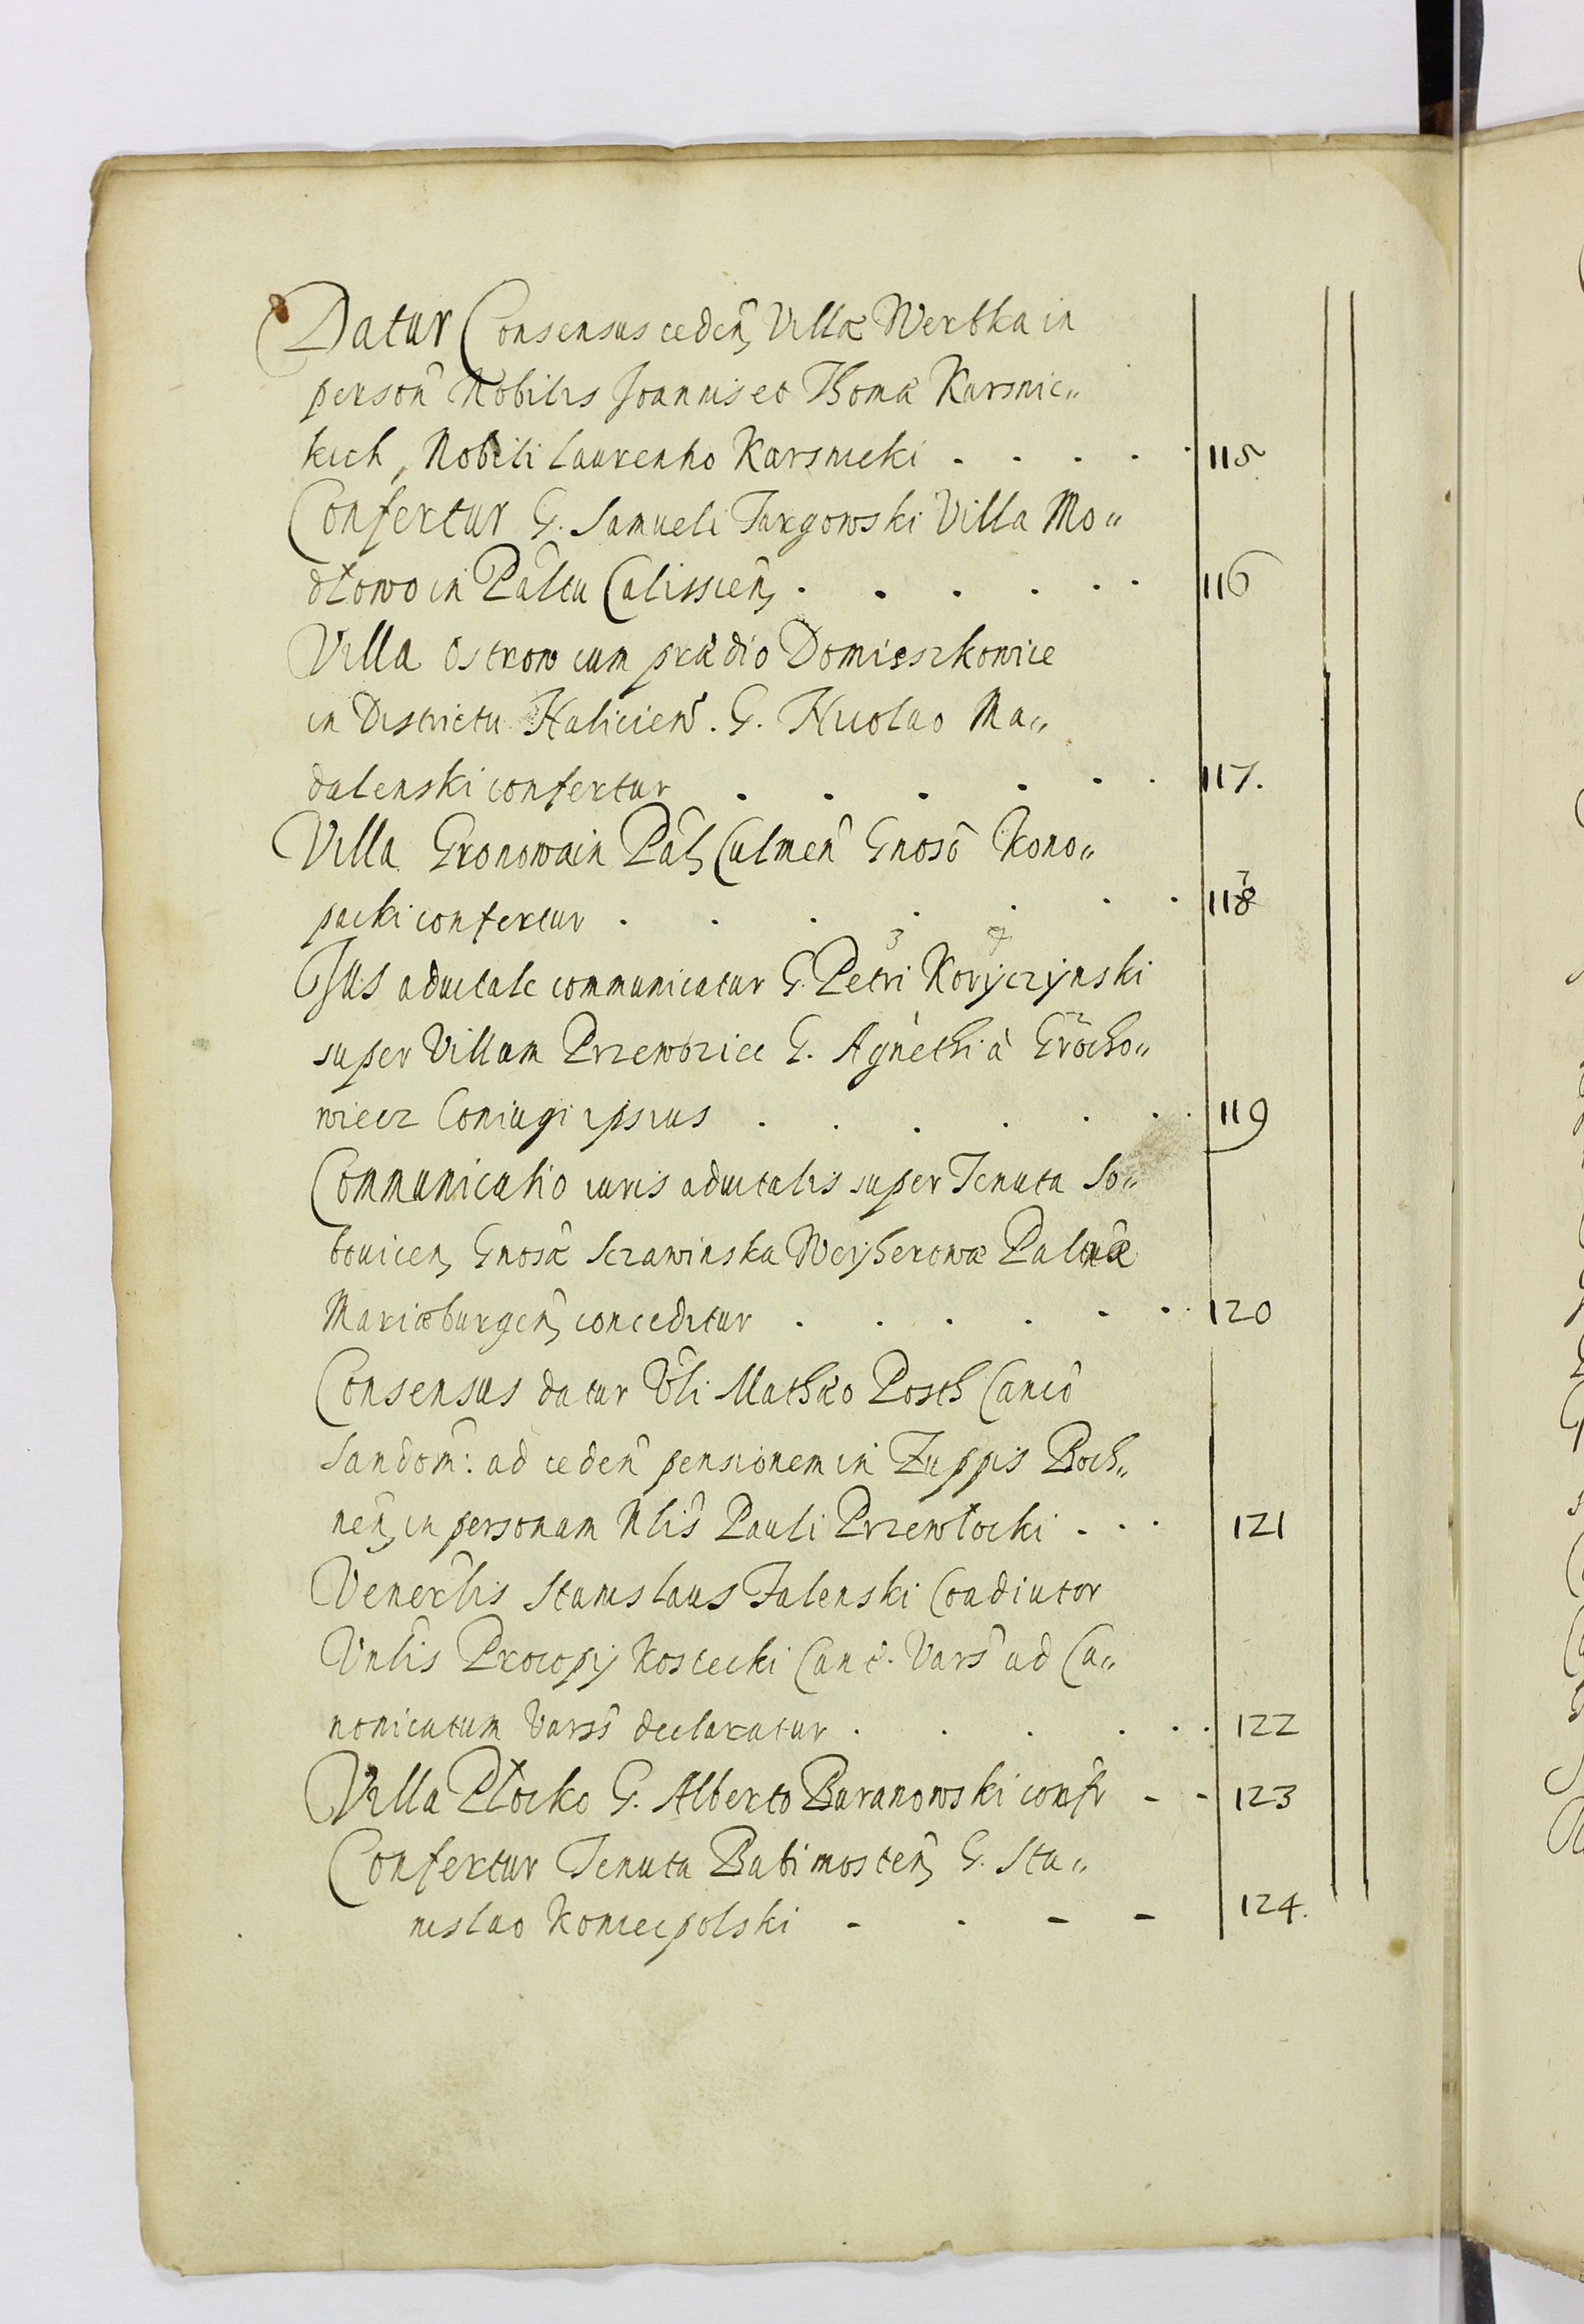 Datur Consensus ceden̂, Villæ Wertka in
person̂ Nobilis Joannis et Thomæ Karsnic„
kich, Nobili Laurentio Karsnicki . . . . . 115
Confertur G. Samueli Targowski Villa Mo„
dłowo in Pal̂tu Calissien̂, . . . . . . 116
Villa Ostrow cum prædio Domieszkowice
in Districtu Halicien̂. G. Nicolao Ma„
dalenski confertur . . . . . . 117.
Villa Gronowa in Pal̂, Culmen̂ Gnosô Kono„
packi confertur . . . . . . . 118 7
Jus aduitale communicatur G. Petri 3 Koryczynski 4
super Villam Przewbziec G. Agnethi à Grocho„ 2
wiecz Coniugi ipsius . . . . . . 119
Communicatio iuris aduitalis super Tenuta So„
bouicen, Gnosæ̂ Sczawinska Weyherowæ Palnæ̂
Mariæburgen̂, conceditur . . . . . . 120
Consensus datur Vl̂i Mathæo Posth Canco̊̂
Sandom̂: ad ceden̂ pensionem in Zuppis Boch„
nen̂, in personam Nliŝ Pauli Przewłocki . . . 121
Vener̂lis Stanislaus Falenski Coadiutor
Vnlîs Procopij Koscecki Canĉ. Varŝ ad Ca„
nonicatum Varsŝ declaratur . . . . . . 122
Villa Płocko G. Alberto Baranowski conf̂r - - 123
Confertur Tenuta Babimosten̂, G. Sta„
nislao Koniecpolski - - - - 124.